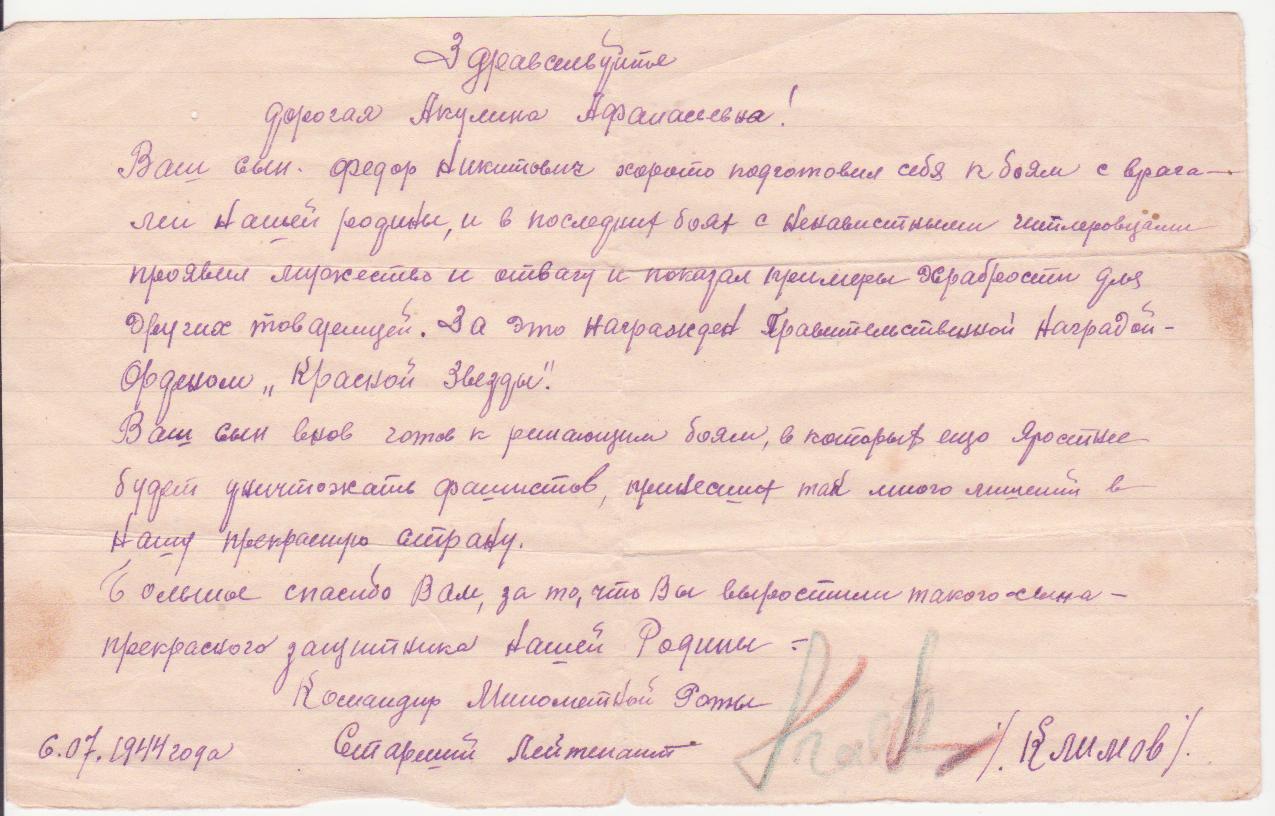 Здравствуйте
дорогая Акулина Афанасьевна!
Ваш сын. Федор Никитович хорошо подготовил себя к боям с врага—
ми нашей родины, и в последних боях с ненавистными гитлеровцами
проявил мужество и отвагу и показал примеры храбрости для
других товарищей. За это награжден Правительственной наградой-
Орденом „Красной Звезды".
Ваш сын внов готов к решающим боям, в которых ещо яростнее
будет уничтожать фашистов, принесших так много лишений в
нашу прекрасную страну.
Большое спасибо Вам, за то, что Вы выростили такого сына—
прекрасного защитника нашей Родины -
Командир Минометной Роты
6.07.1944 года Старший Лейтенант /Климов/.